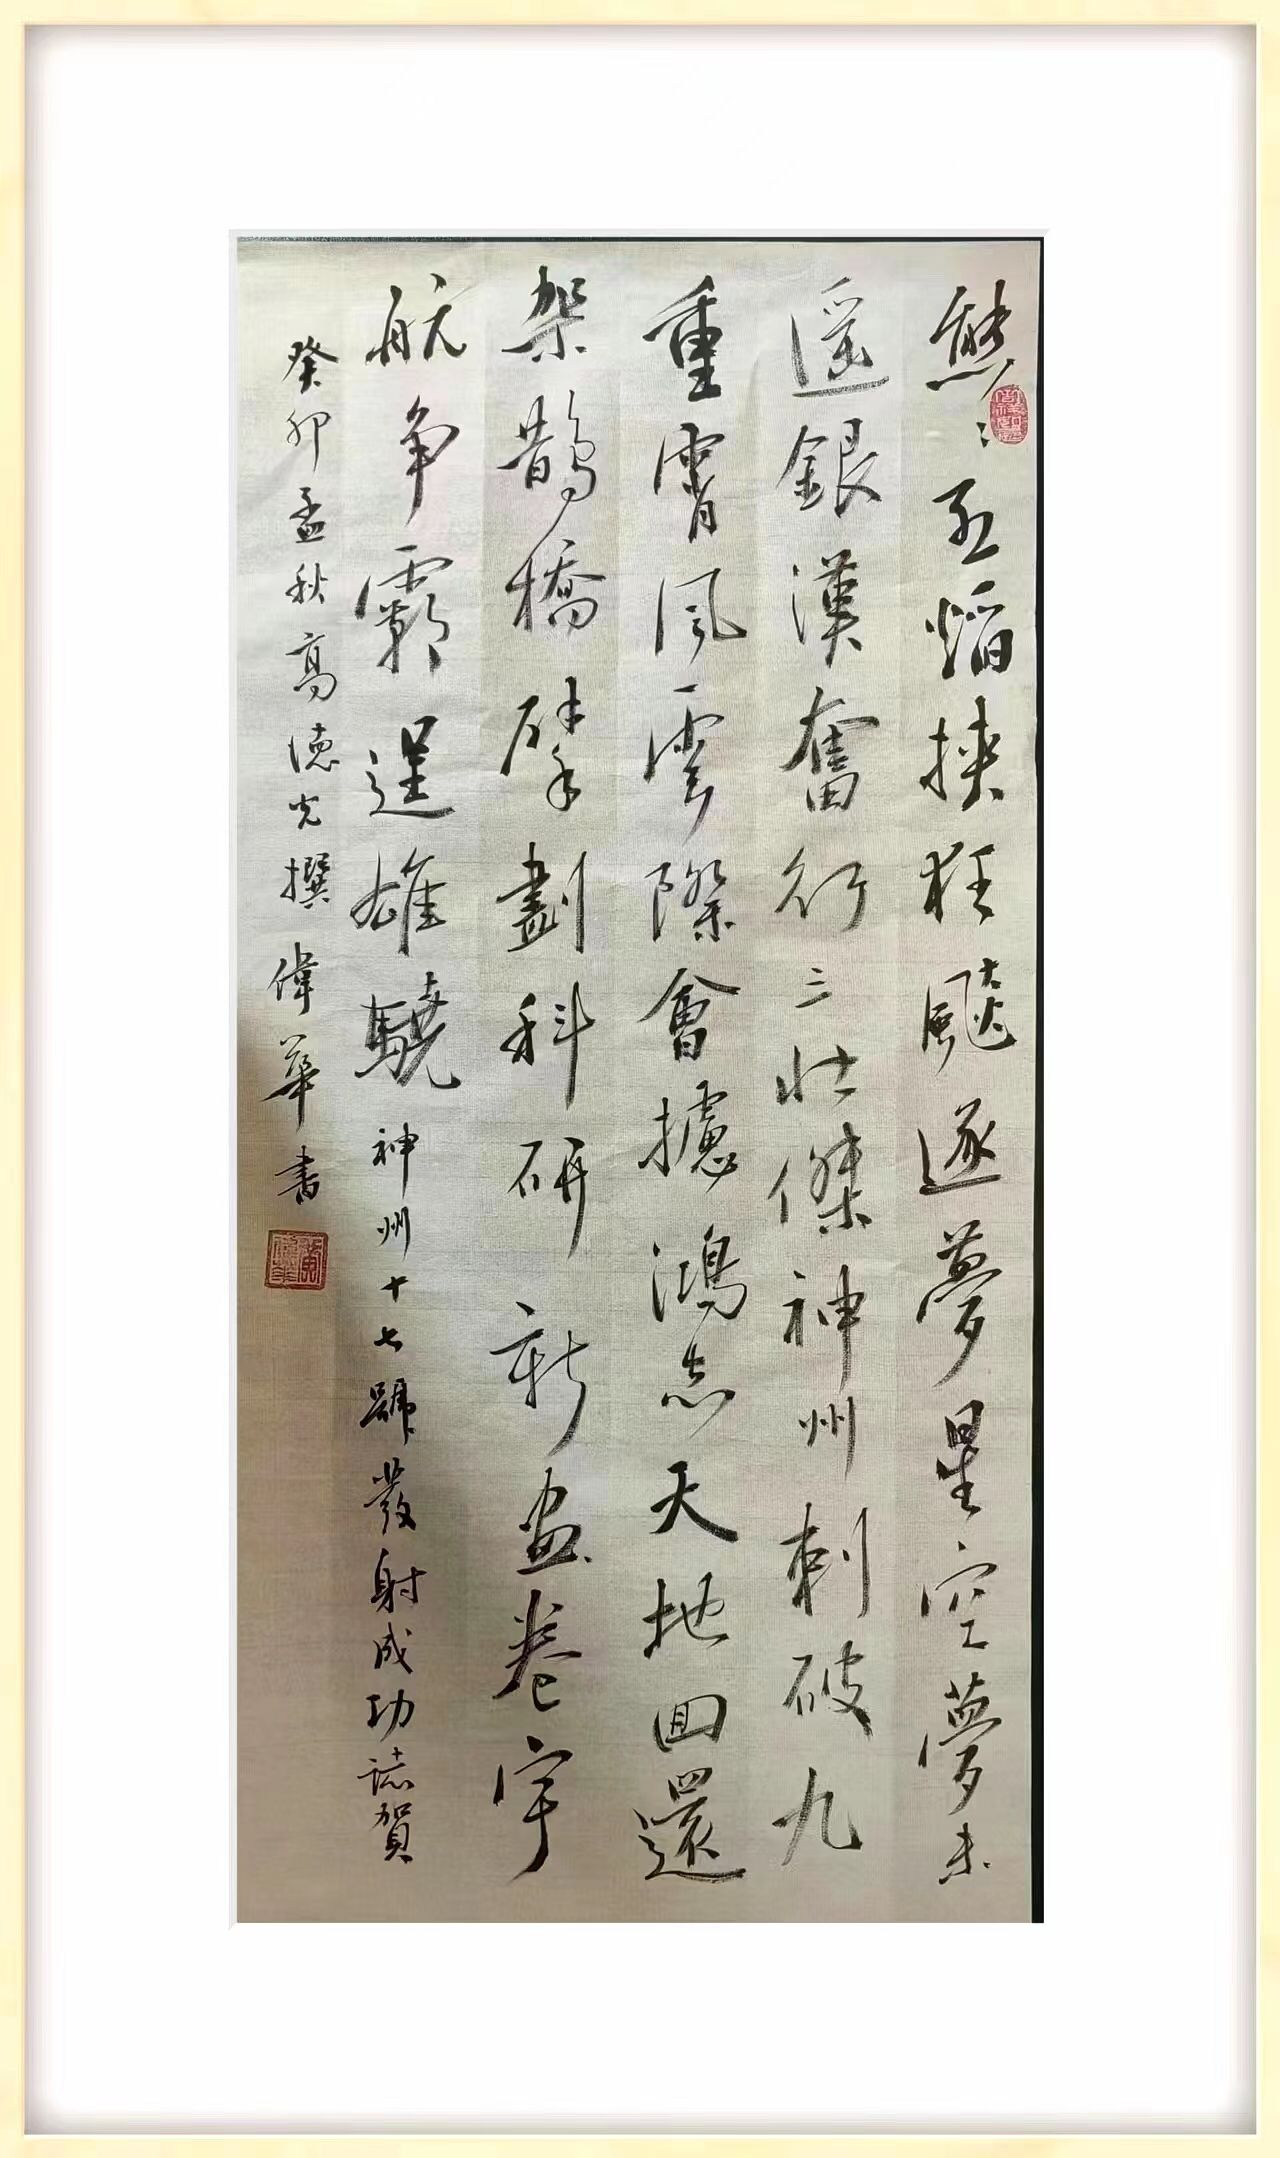 熊々烈焰挾狂飆遂夢星空夢未
遥銀漢奮行三壯傑神州刺破九
重霄風雲際會攄鴻志天地回還
架鵲橋擘劃科研新畫卷宇
航争霸逞雄驍 神州十七號發射成功誌賀
癸卯孟秋高德光撰 偉華書